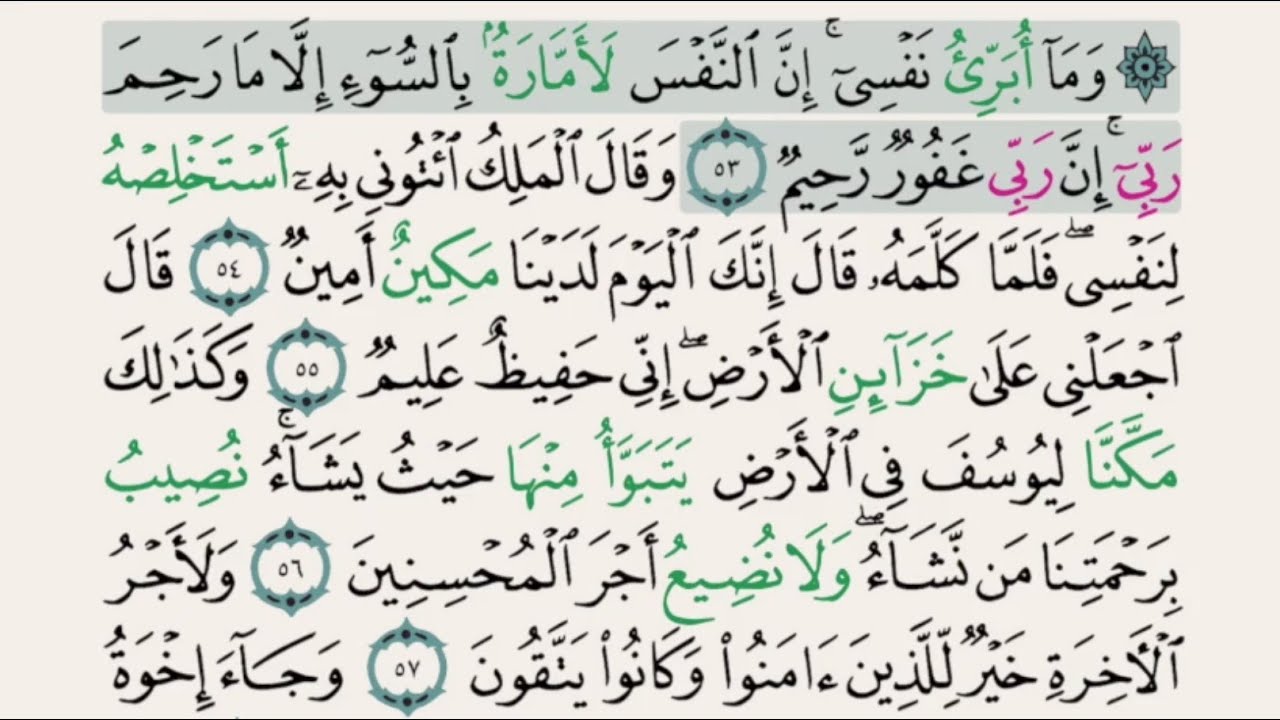 ۞ وَمَآ أُبَرِّئُ نَفۡسِيٓۚ إِنَّ ٱلنَّفۡسَ لَأَمَّارَةُۢ بِٱلسُّوٓءِ إِلَّا مَا رَحِمَ
رَبِّيٓۚ إِنَّ رَبِّي غَفُورٞ رَّحِيمٞ ٥٣ وَقَالَ ٱلۡمَلِكُ ٱئۡتُونِي بِهِۦٓ أَسۡتَخۡلِصۡهُ
لِنَفۡسِيۖ فَلَمَّا كَلَّمَهُۥ قَالَ إِنَّكَ ٱلۡيَوۡمَ لَدَيۡنَا مَكِينٌ أَمِينٞ ٥٤ قَالَ
ٱجۡعَلۡنِي عَلَىٰ خَزَآئِنِ ٱلۡأَرۡضِۖ إِنِّي حَفِيظٌ عَلِيمٞ ٥٥ وَكَذَٰلِكَ
مَكَّنَّا لِيُوسُفَ فِي ٱلۡأَرۡضِ يَتَبَوَّأُ مِنۡهَا حَيۡثُ يَشَآءُۚ نُصِيبُ
بِرَحۡمَتِنَا مَن نَّشَآءُۖ وَلَا نُضِيعُ أَجۡرَ ٱلۡمُحۡسِنِينَ ٥٦ وَلَأَجۡرُ
ٱلۡأٓخِرَةِ خَيۡرٞ لِّلَّذِينَ ءَامَنُواْ وَكَانُواْ يَتَّقُونَ ٥٧ وَجَآءَ إِخۡوَةُ